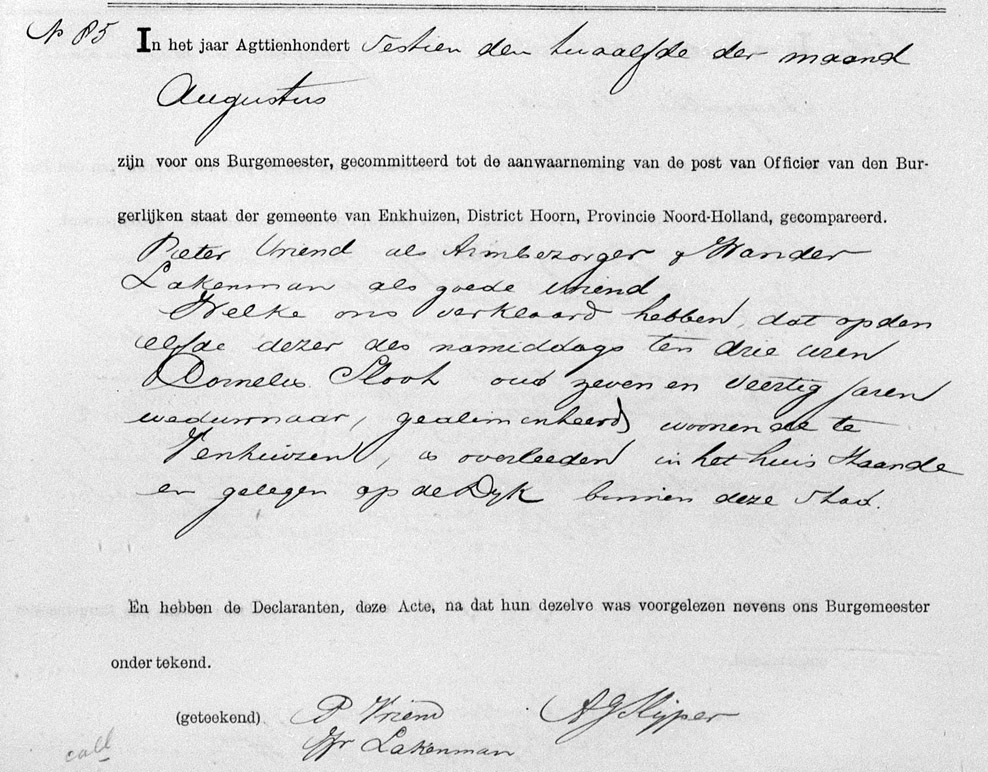 No 85 In het jaar Agttienhondert Sestien den twaalfde der maand
Augustus
zijn voor ons Burgemeester, gecommitteerd tot de aanwaarneming van de post van Officier van den Bur-
gerlijken staat der gemeente van Enkhuizen, District Hoorn, Provincie Noord-Holland, gecompareerd.
Pieter Vriend als Armbezorger & Wander
Lakenman als goede vriend
Welke ons verklaard hebben, dat op den
elfde dezer des namiddags ten drie uren
Cornelis Slooh oud zeven en veertig Jaren
weduwnaar, gealimenteerd, woonende te
Venhuizen, is overleeden in het huis staande
en gelegen op de Dyk binnen deze Stad.
En hebben de Declaranten, deze Acte, na dat hun dezelve was voorgelezen nevens ons Burgemeester
ondertekend.
(geteekend) P Vriend
Wr Lakenman
call